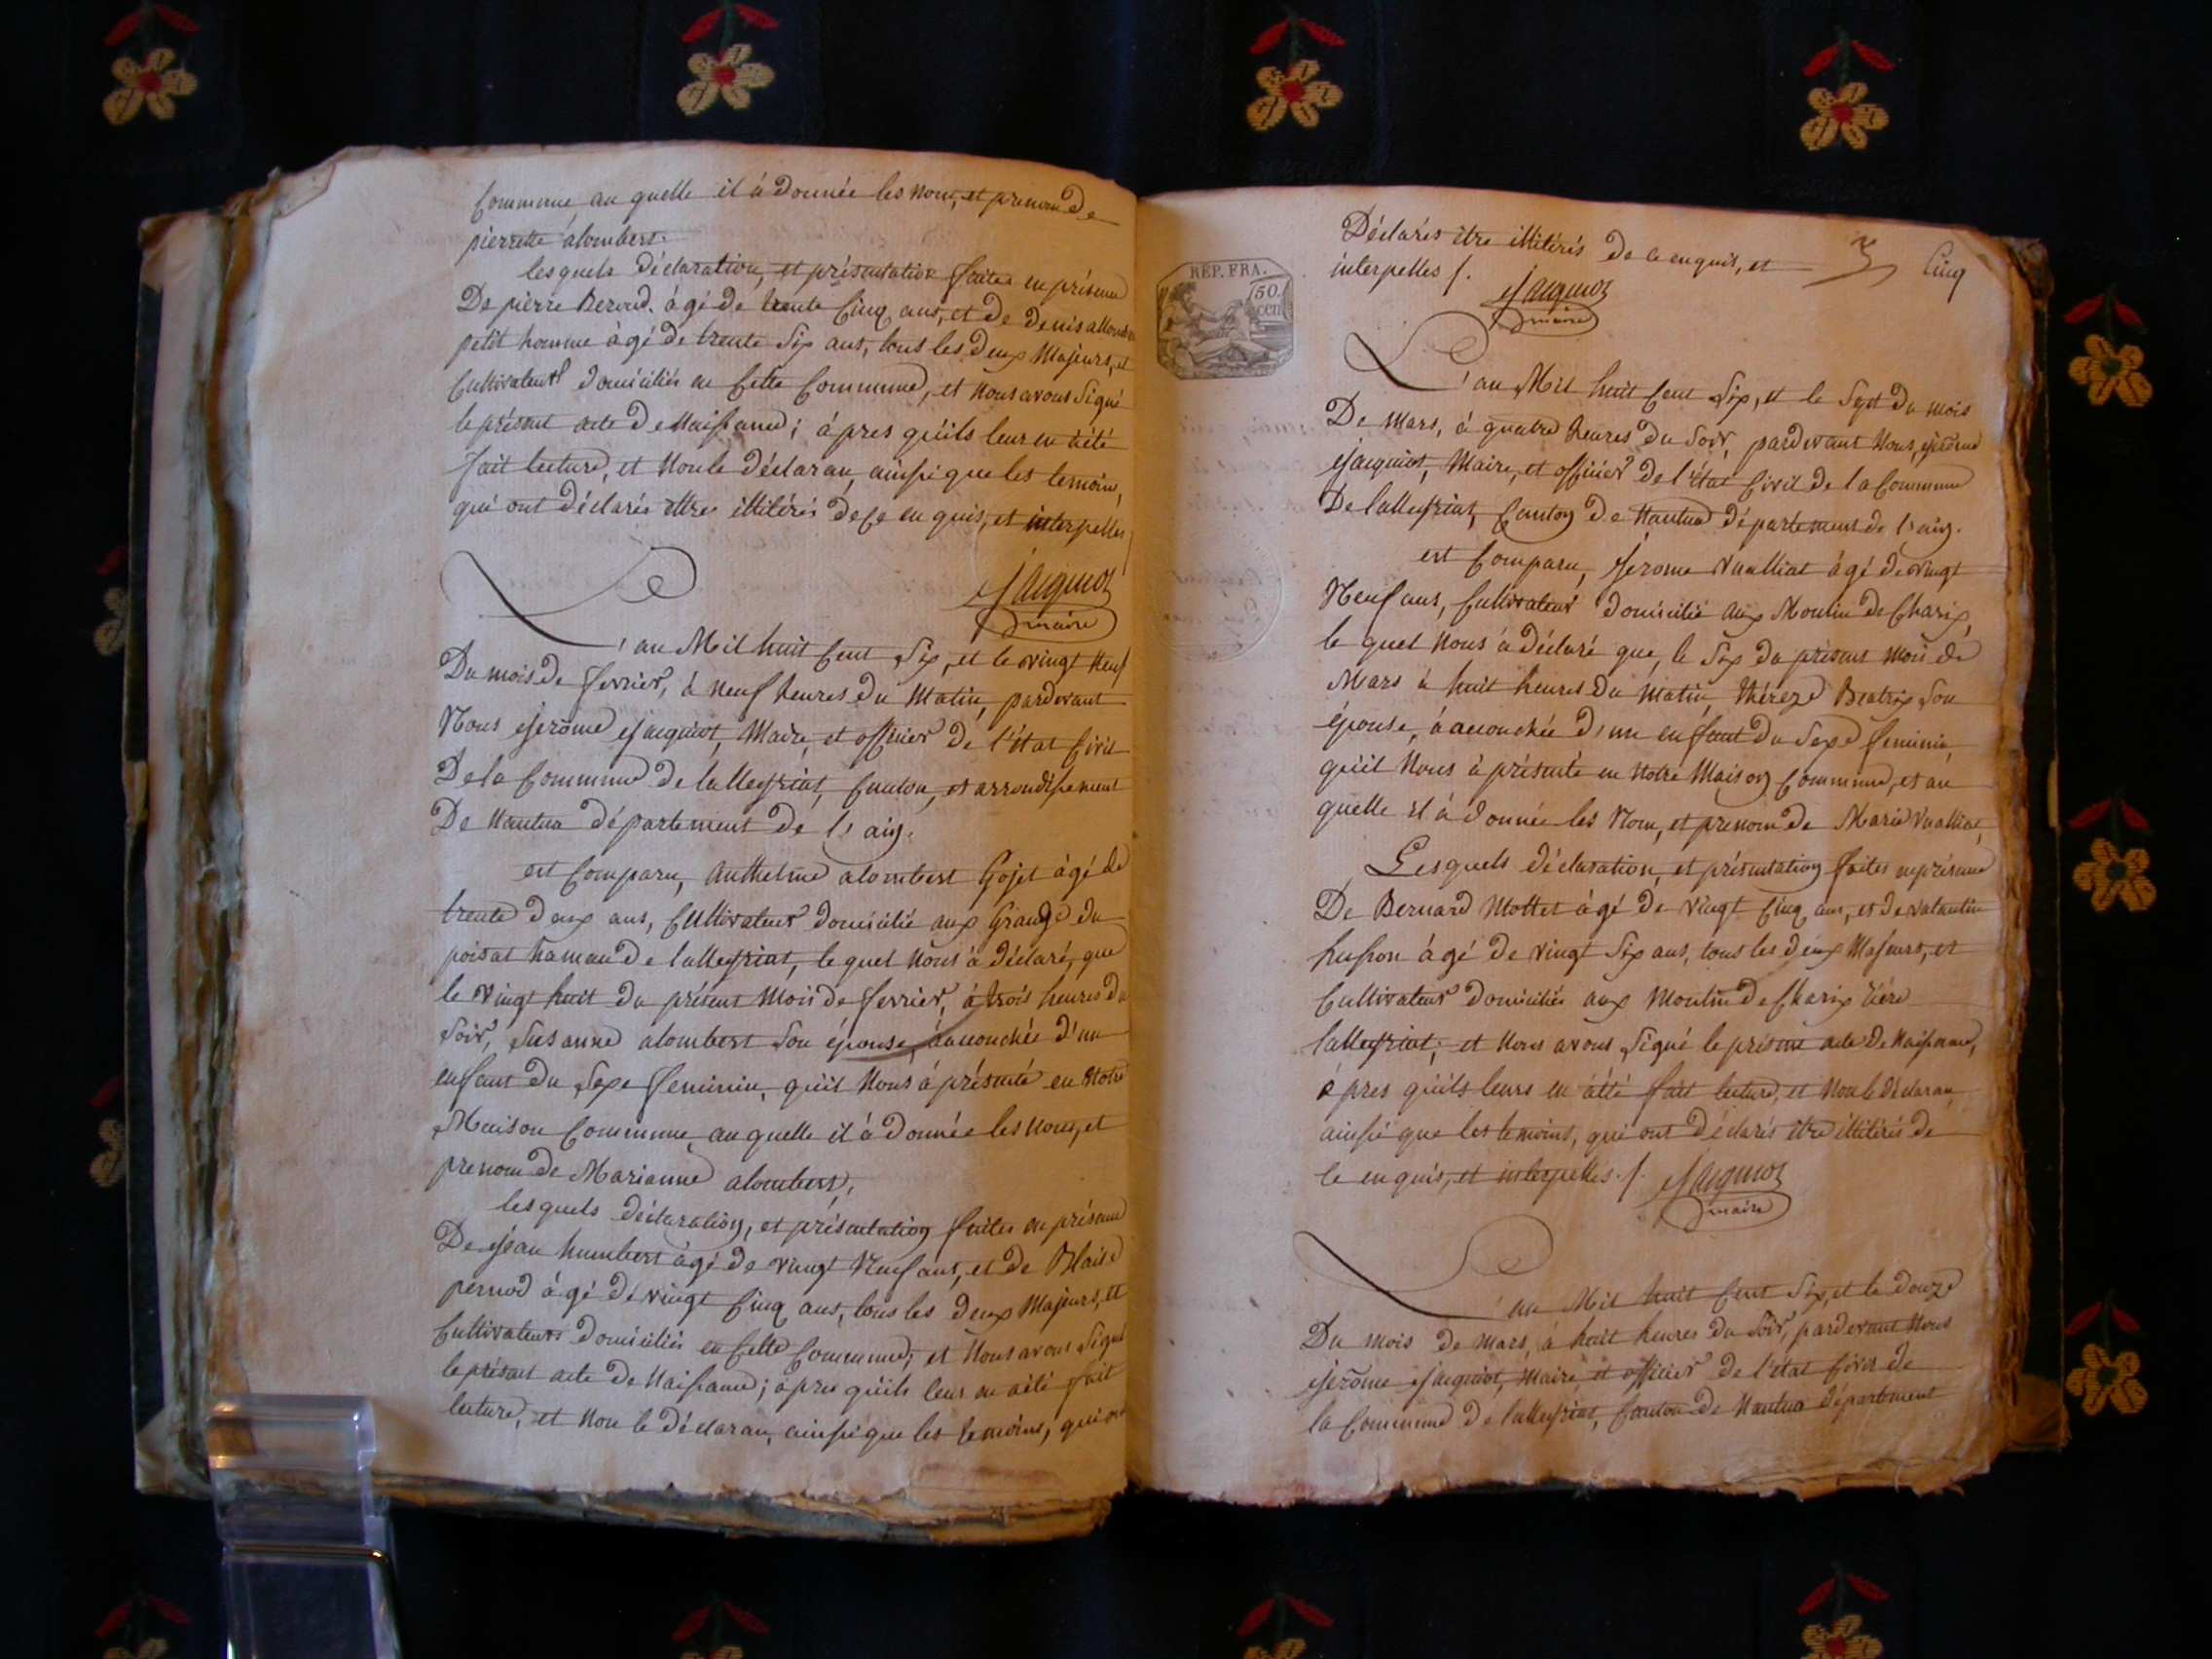 Commune, au quelle il à donnée les nom, et prenom de
pierrette alombert.
lesquels déclaration, et présentation faites en présence
De pierre Beroud. àgé de trente Cinq ans, et de denis allombert
petit homme àgé de trente Six ans, tous les deux Majeurs, et
Cultivateurs domiciliés en Cette Commune, et Nous avons Signé
le présent acte De Naissance; àpres qu'ils leur en àété
fait lecture, et Non le déclaran, ainsi que les temoins,
qui ont déclarés ettres illitérés de Ce en quis, et interpelles
Jacquiot
maire
L'an Mil huit Cent Six, et le vingt Neuf
Du mois de fevrier, à Neuf heures du Matin, pardevant
Nous Jerôme Jacquiot, Maire, et officier de l'état Civil
De la Commune de lalleyriat, Canton, et arrondissement
De Nantua département de l'ain.
est Comparu, Anthelme alombert Gojet àgé de
trente deux ans, Cultivateur domicilié aux Grange du
poisat hamau de lalleyriat, le quel Nous à déclaré, que
le vingt huit du présent Mois de fevrier, à trois heures du
Soir, Susanne alombert Son épouse, àaccouchée d'un
enfant du Sexe feminin, qu'il Nous à présenté en Notre
Maison Commune, au quelle il à donnée les Nom, et
prenom de Marianne alombert,
lesquels déclaration, et présentation faites en présence
De Jean humbert àgé de vingt Neuf ans, et de Blaise
pernod àgé de vingt Cinq ans, tous les deux Majeurs, et
Cultivateurs domiciliés en Cette Commune; et Nous avons Signé
le présent acte de Naissance; àpres qu'ils leur en àété fait
lecture, et Non le déclaran, ainsi que les temoins, qui ont
Déclarés être illitérés de Ce enquis, et
Cinq
interpelles /.
REP. FRA.
50.
cen
Jacquiot
maire
L'an Mil huit Cent Six, et le Sept du mois
De Mars, à quatre heures du Soir, pardevant Nous, Jerôme
Jacquiot, Maire, et officier de l'état Civil de la Commune
De lalleyriat, Canton de Nantua département de l'ain.
est Comparu, Jerome Vualliat àgé de vingt
Neuf ans, Cultivateur domicilié aux Moulin de Charix,
le quel Nous à déclaré que, le Six du présent Mois de
Mars à huit heures du Matin, théreze Beatrix Son
épouse, à accouchée d'un enfant du Sexe feminin
qu'il Nous à présenté en Notre Maison Commune, et au
quelle il à donnée les Nom, et prenom de Marie Vualliat,
Lesquels déclaration, et présentation faites en présence
De Bernard Mottet àgé de vingt Cinq ans, et de valantin
husson àgé de vingt Six ans, tous les deux Majeurs, et
Cultivateur domiciliés aux Moulin de Charix riére
lalleyriat; et Nous avons Signé le présent acte De Naissance,
àpres qu'ils leurs en àété fait lecture, et Non le déclaran
ainsi que les temoins, qui ont déclarés être illitérés de
Ce en quis, et interpelles. /.
Jacquiot
maire
L'an Mil huit Cent Six, et le douze
Du mois de mars, à huit heures du Soir, pardevant Nous
Jerôme Jacquiot, Maire, et officier de l'état Civil de
la Commune de lalleyriat, Canton de Nantua département